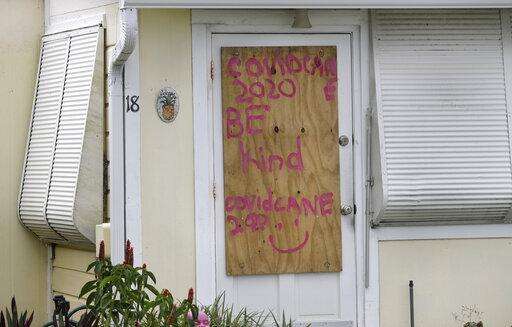 18
COVIDCANE
2020
BE
kind
covidCANE
202